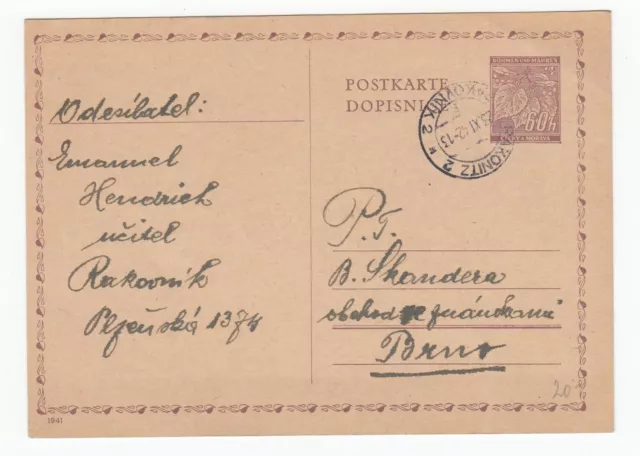 Odesílatel:
Emanuel
Hendrich
učitel
Rakovník
Plzeňská 1374
POSTKARTE
DOPISNI
BÖHMEN UND MÄHREN
60 h
ČECHY A MORAVA
RAKONITZ 2
RAKOVNÍK 2
XI.42-13
P.T.
B. Skandera
obchod se známkami
Brno
20
1941